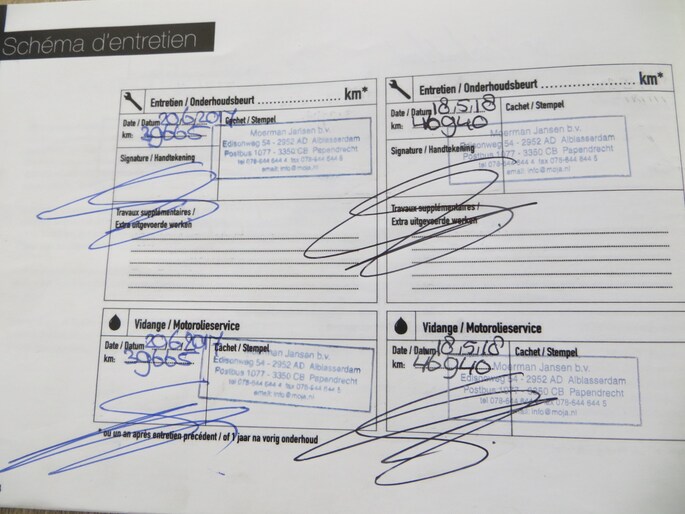 Schéma d'entretien
Entretien / Onderhoudsbeurt .................... km*
Date / Datum 20,6,2017 Cachet / Stempel
km: 39665
Moerman Jansen b.v.
Edisonweg 54 - 2952 AD Alblasserdam
Postbus 1077 - 3350 CB Papendrecht
tel 078-644 644 4 fax 078-644 644 5
email: info@moja.nl
Signature / Handtekening
Travaux supplémentaires /
Extra uitgevoerde werken
Vidange / Motorolieservice
Date / Datum 20,6,2017 Cachet / Stempel
km: 39665
Moerman Jansen b.v.
Edisonweg 54 - 2952 AD Alblasserdam
Postbus 1077 - 3350 CB Papendrecht
tel 078-644 644 4 fax 078-644 644 5
email: info@moja.nl
* ou un an après entretien précédent / of 1 jaar na vorig onderhoud
Entretien / Onderhoudsbeurt .................... km*
Date / Datum 18,5,18 Cachet / Stempel
km: 46940
Moerman Jansen b.v.
Edisonweg 54 - 2952 AD Alblasserdam
Postbus 1077 - 3350 CB Papendrecht
tel 078-644 644 4 fax 078-644 644 5
email: info@moja.nl
Signature / Handtekening
Travaux supplémentaires /
Extra uitgevoerde werken
Vidange / Motorolieservice
Date / Datum 18,5,18 Cachet / Stempel
km: 46940
Moerman Jansen b.v.
Edisonweg 54 - 2952 AD Alblasserdam
Postbus 1077 - 3350 CB Papendrecht
tel 078-644 644 4 fax 078-644 644 5
email: info@moja.nl